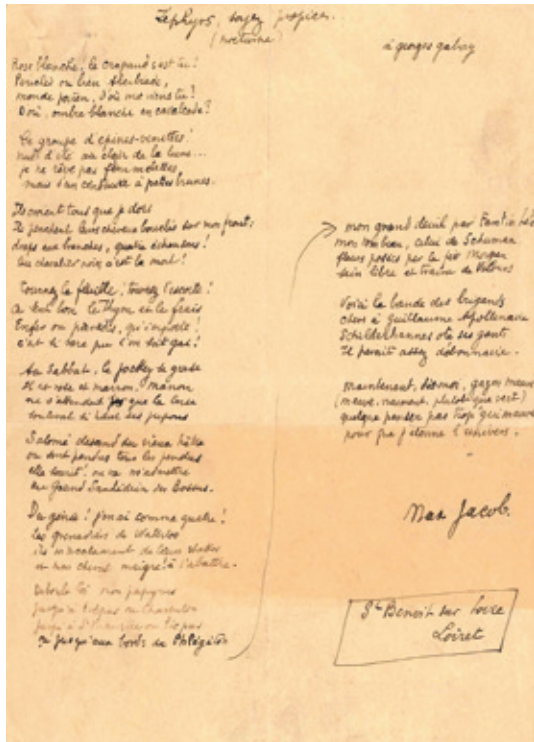 Zephyrs, soyez propices.
(nocturne)
à georges gabory
Rose blanche, le crapaud c'est tu!
Périclès ou bien Alcibiade,
monde , d'où me viens tu?
D'où, ombre blanche en cavalcade?
Ce groupe d'épines-vinettes!
nuit d'été au clair de la lune...
je ne rêve pas femmelettes,
mais d'un centaure à pattes brunes.
Ils savent tous que je dors
Ils penchent leurs cheveux bouclés sur mon front:
draps aux branches, quatre échansons!
Un chevalier noir, c'est la mort!
Tournez la feuille! tournez l'escorte!
Ça sent bon le thym et le frais
Enfer ou paradis, qu'importe!
c'est si rare que l'on soit gai!
Au Sabbat, le jockey de
Il est rose et marron, marron
ne s'attendent que la
si haut ses jupons
Salomé descend du vieux hêtre
où sont pendus tous les pendus
elle sourit! on va m'admettre
au Grand Sanhédrin des Bossus.
Du génie! j'en ai comme quatre!
les grenadiers de Waterloo
de leurs
et mon cheval maigre! à l'abattre.
toi mon papyrus
jusqu'à ou Charenton
jusqu'à ou
ou jusqu'aux bords du Phlégéton
mon grand deuil par Fantin
mon tombeau, celui de Schuman
fleurs posées par la fée Morgan
sein libre et traine de Velours
Voici la bande des brigands
chers à Guillaume Apollinaire
Schilderhannes ôte ses gants
Il paraît assez débonnaire.
maintenant, dis-moi, gazon mauve
(mauve, vraiment, plutôt que vert)
quelque pas trop
pour que j'étonne l'univers.
Max Jacob.
St Benoit sur Loire
Loiret